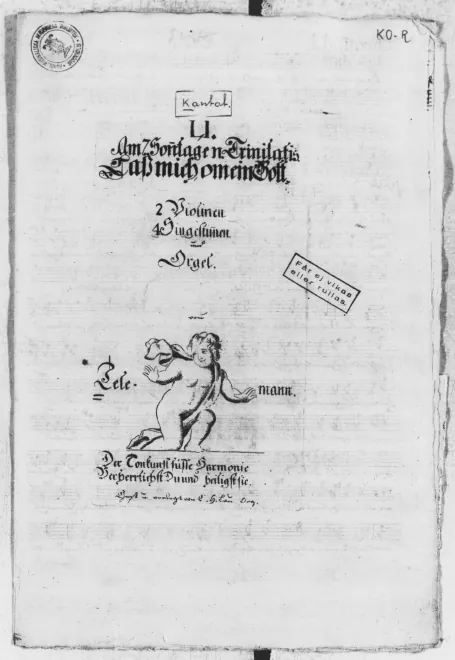 KO-R
Kantat.
LI.
Am 7 Sontage n. Trinitatis
Laß mich o mein Gott.
2 Violinen
4 Singstimen
und
Orgel.
Får ej vikas
eller rullas.
von
Tele-
mann.
Der Tonkunst süsse Harmonie
Verherrlichst Du und heiligst sie.
von C. H.